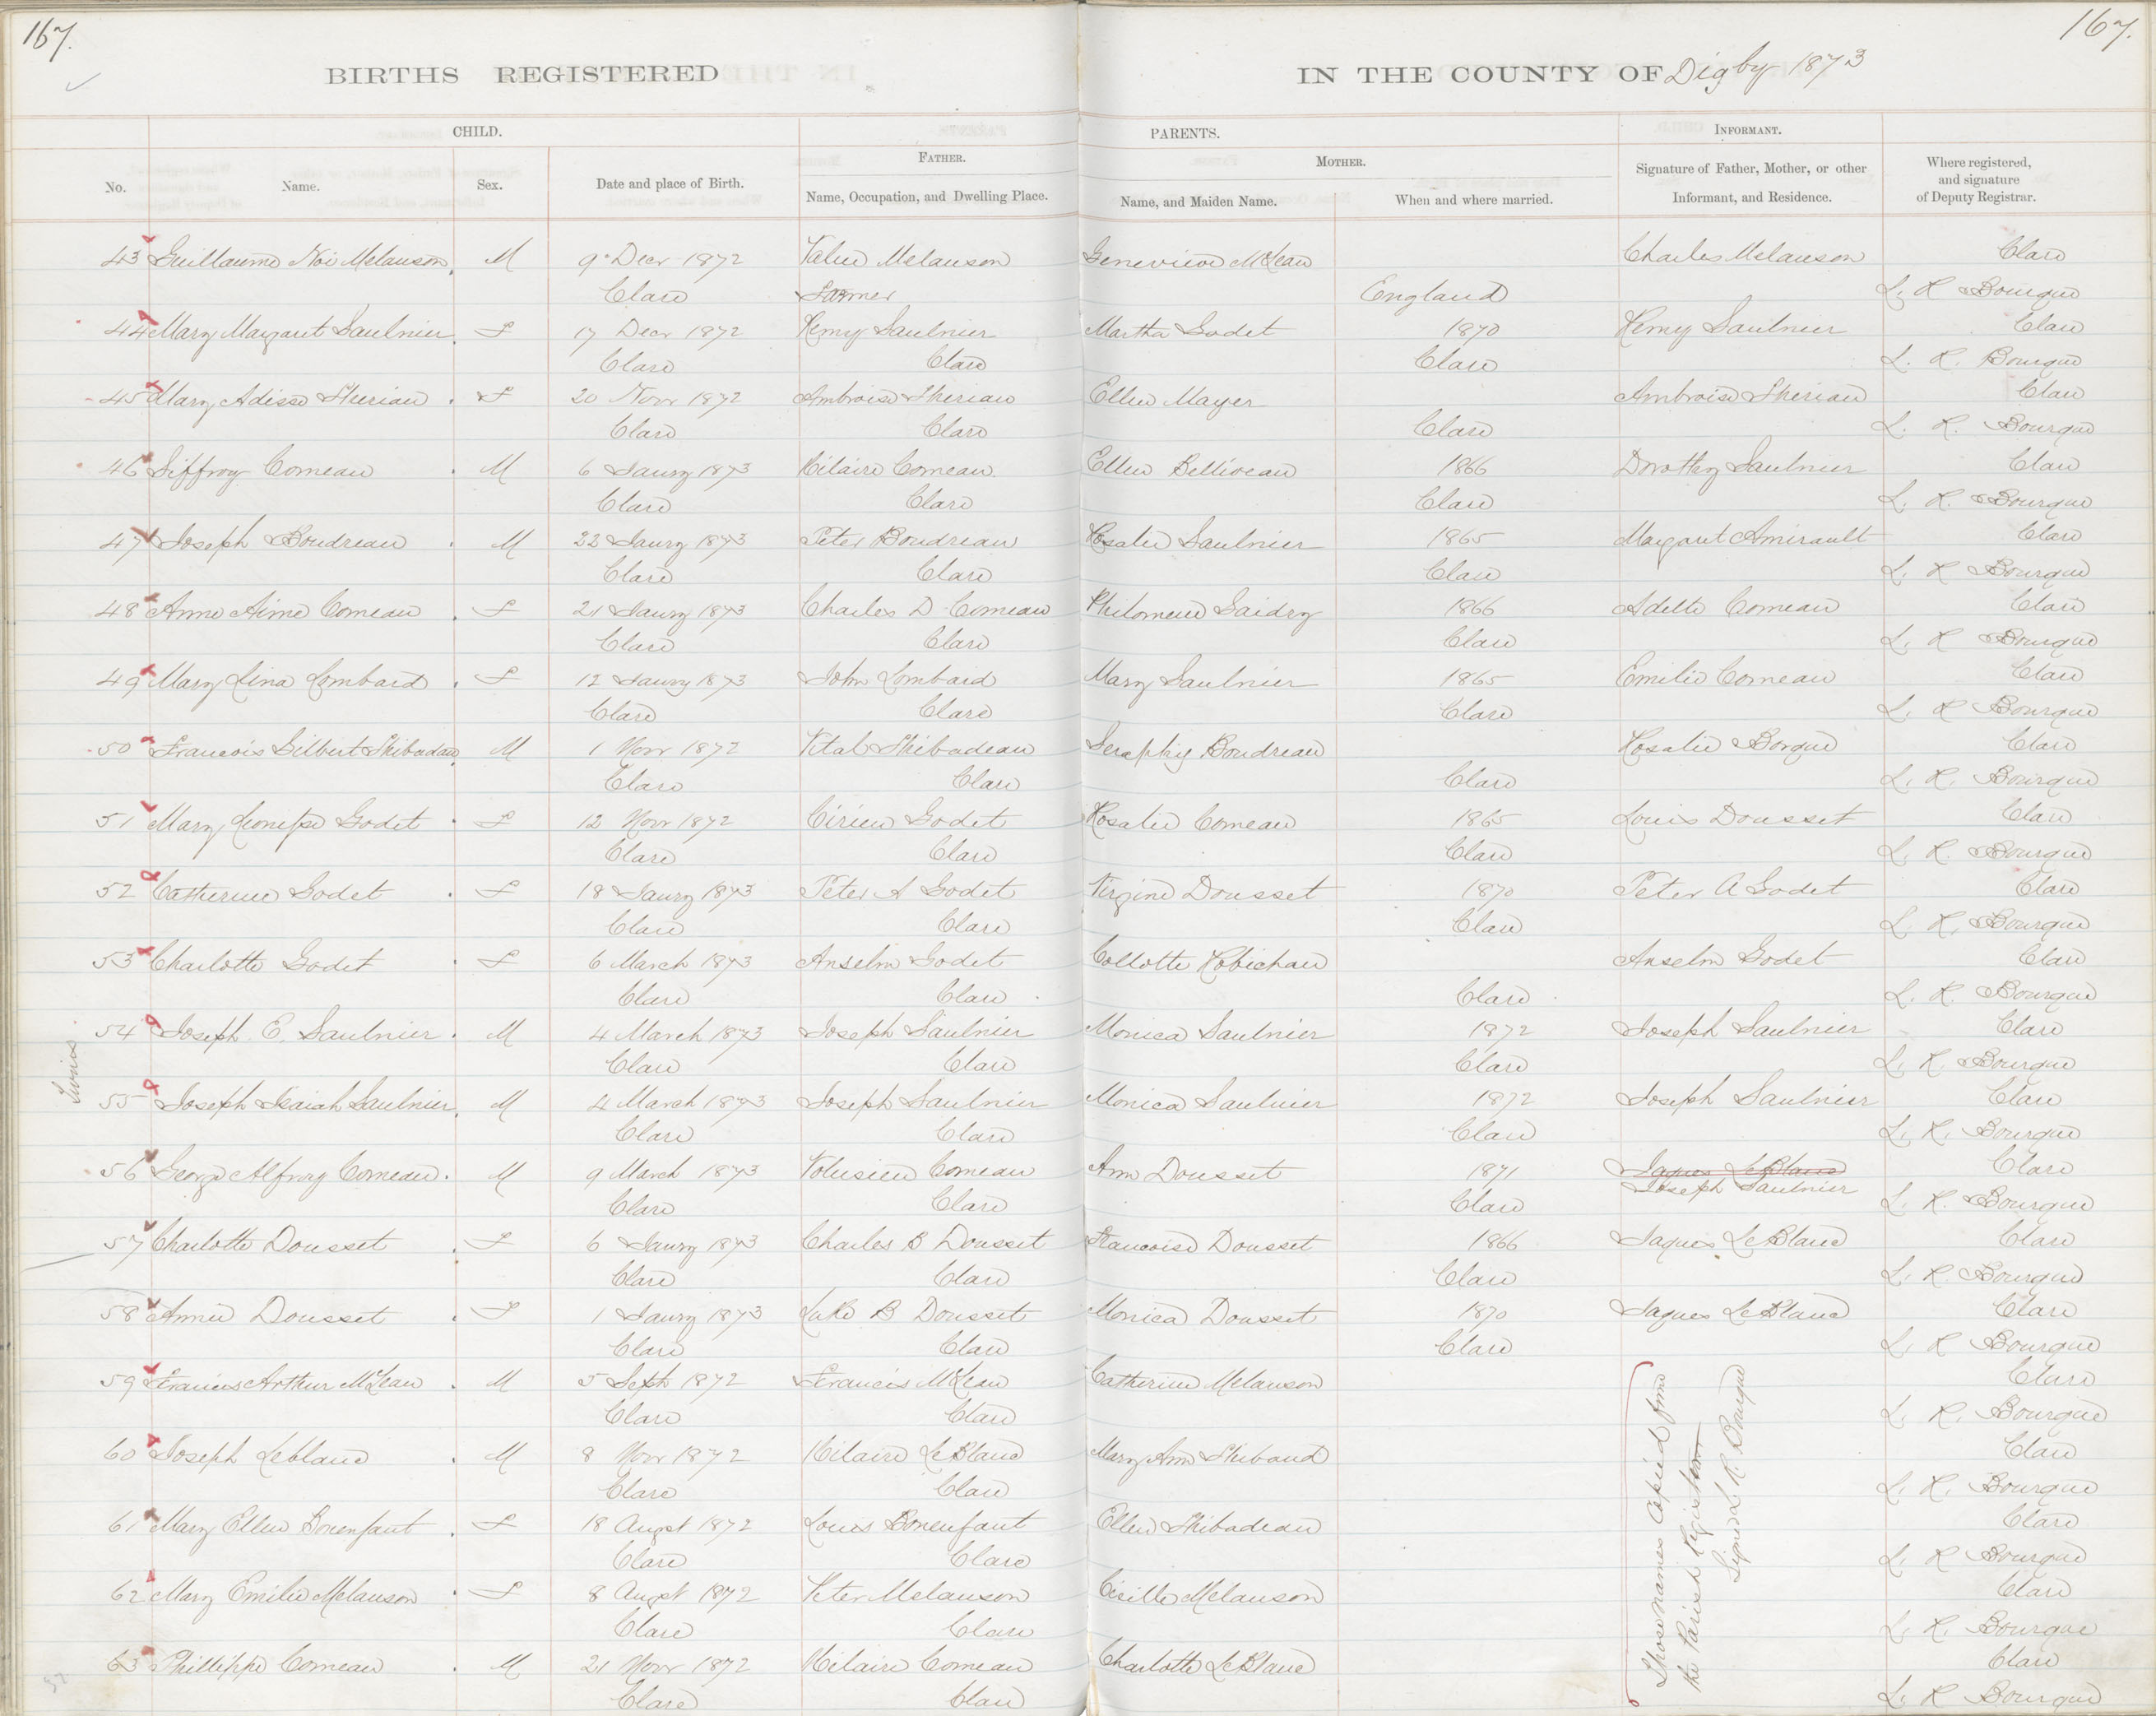 167.
167.
BIRTHS REGISTERED
IN THE COUNTY OF Digby 1873
CHILD.
PARENTS.
INFORMANT.
FATHER.
MOTHER.
No.
Name.
Sex.
Date and place of Birth.
Name, Occupation, and Dwelling Place.
Name, and Maiden Name.
When and where married.
Signature of Father, Mother, or other
Informant, and Residence.
Where registered,
and signature
of Deputy Registrar.
43 Guillaume Noi Melanson M 9 Decr 1872 Melanson Genevieve McLean Charles Melanson Clare
Clare Farmer England L. R Bourque
44 Mary Margaret Saulnier F 17 Decr 1872 Remy Saulnier Martha Godet 1870 Remy Saulnier Clare
Clare Clare Clare L. R. Bourque
45 Mary Adisse Therian F 20 Novr 1872 Ambroise Therian Ellen Mayer Ambroise Therian Clare
Clare Clare Clare L. R. Bourque
46 Siffroy Comeau M 6 Jaury 1873 Hilaire Comeau Ellen Belliveau 1866 Dorothy Saulnier Clare
Clare Clare Clare L. R. Bourque
47 Joseph Boudreau M 22 Jaury 1873 Peter Boudreau Rosalie Saulnier 1865 Margaret Amirault Clare
Clare Clare Clare L. R Bourque
48 Anne Aime Comeau F 21 Jaury 1873 Charles D. Comeau Philomene Gaidry 1866 Adelle Comeau Clare
Clare Clare Clare L. R Bourque
49 Mary Lina Lombard F 12 Jaury 1873 John Lombard Mary Saulnier 1865 Emilie Comeau Clare
Clare Clare Clare L. R Bourque
50 Francois Gilbert Thibadau M 1 Novr 1872 Vital Thibadeau Boudreau Rosalie Borque Clare
Clare Clare Clare L. R. Bourque
51 Mary Godet F 12 Novr 1872 Cirien Godet Rosalie Comeau 1865 Louis Dousset Clare
Clare Clare Clare L. R. Bourque
52 Catherine Godet F 18 Jaury 1873 Peter A Godet Virgine Dousset 1870 Peter A Godet Clare
Clare Clare Clare L. R. Bourque
53 Charlotte Godet F 6 March 1873 Anselm Godet Collotte Robichau Anselm Godet Clare
Clare Clare Clare L. R. Bourque
54 Joseph E. Saulnier M 4 March 1873 Joseph Saulnier Monica Saulnier 1872 Joseph Saulnier Clare
Twins.
Clare Clare Clare L. R. Bourque
55 Joseph Isaiah Saulnier M 4 March 1873 Joseph Saulnier Monica Saulnier 1872 Joseph Saulnier Clare
Clare Clare Clare L. R. Bourque
56 George Alfroy Comeau M 9 March 1873 Volusien Comeau Ann Dousset 1871 Jaques LeBlanc Clare
Joseph Saulnier
Clare Clare Clare L. R. Bourque
57 Charlotte Dousset F 6 Jaury 1873 Charles B Dousset Francoise Dousset 1866 Jaques LeBlanc Clare
Clare Clare Clare L. R. Bourque
58 Annie Dousset F 1 Jaury 1873 Luke B Dousset Monica Dousset 1870 Jaques LeBlanc Clare
Clare Clare Clare L. R Bourque
59 Francis Arthur McLean M 5 Sept 1872 Francis McLean Catherine Melanson Clare
Clare Clare L. R. Bourque
60 Joseph Leblanc M 8 Novr 1872 Hilaire LeBlanc Mary Ann Thibaud Clare
Clare Clare L. R. Bourque
61 Mary Ellen Bonenfant F 18 Augst 1872 Louis Bonenfant Ellen Thibadeau Clare
Clare Clare L. R Bourque
62 Mary Emilie Melanson F 8 Augst 1872 Peter Melanson Cicille Melanson Clare
Clare Clare L. R. Bourque
63 Phillippe Comeau M 21 Novr 1872 Hilaire Comeau Charlotte LeBlanc Clare
Clare Clare L. R Bourque
Those names Copied from
the Parish Register
Signed L. R. Bourque